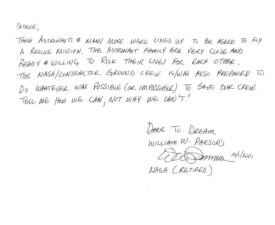 PATRICK,
THOSE ASTRONAUTS & MANY MORE WERE LINED UP TO BE ASKED TO FLY
A RESCUE MISSION. THE ASTRONAUT FAMILY ARE VERY CLOSE AND
READY & WILLING TO RISK THEIR LIVES FOR EACH OTHER.
THE NASA/CONTRACTOR GROUND CREW IS/WAS ALSO PREPARED TO
DO WHATEVER WAS POSSIBLE (OR IMPOSSIBLE) TO SAVE OUR CREW.
TELL ME HOW WE CAN, NOT WHY WE CAN'T!
DARE TO DREAM
WILLIAM W. PARSONS
NASA (RETIRED)